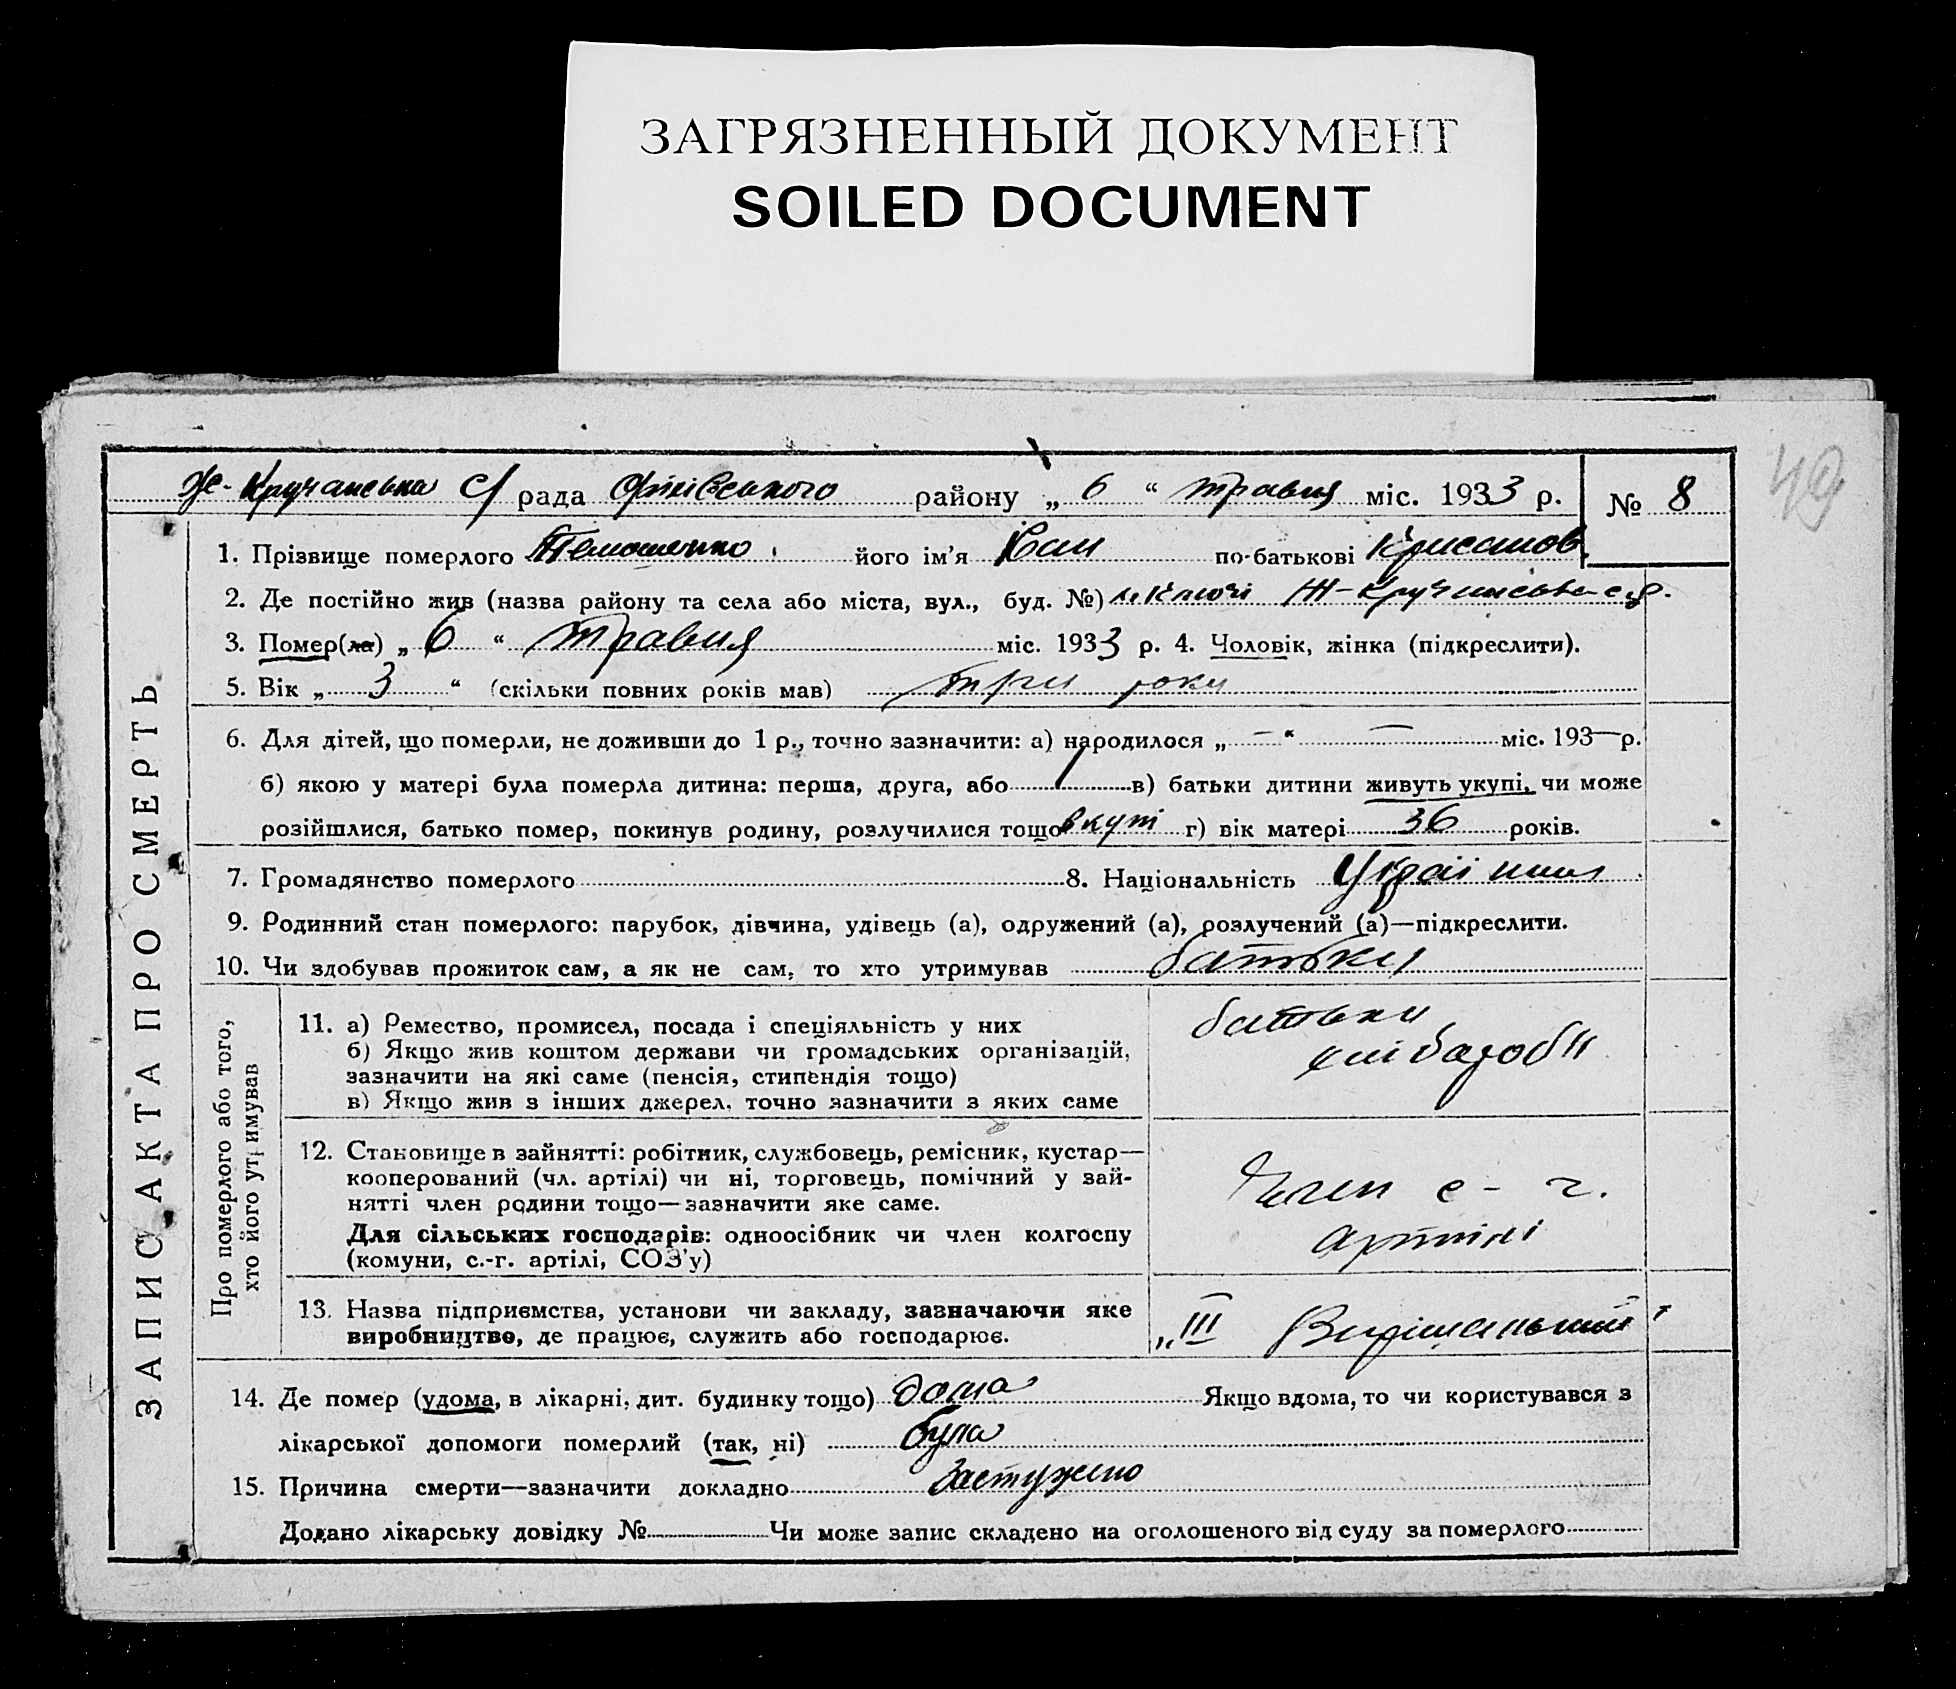 ЗАГРЯЗНЕННЫЙ ДОКУМЕНТ
SOILED DOCUMENT
49
Ж-Кручанська с/ рада району „ 6 “ травня міс. 1933 р. № 8
ЗАПИС АКТА ПРО СМЕРТЬ
1. Прізвище померлого його ім'я по-батькові
2. Де постійно жив (назва району та села або міста, вул., буд. №)
3. Помер(ла) „ 6 “ травня міс. 1933 р. 4. Чоловік, жінка (підкреслити).
5. Вік „ 3 “ (скільки повних років мав) три роки
6. Для дітей, що померли, не доживши до 1 р., точно зазначити: а) народилося „ — “ — міс. 193— р.
б) якою у матері була померла дитина: перша, друга, або в) батьки дитини живуть укупі, чи може
розійшлися, батько помер, покинув родину, розлучилися тощо вкупі г) вік матері 36 років.
7. Громадянство померлого 8. Національність
9. Родинний стан померлого: парубок, дівчина, удівець (а), одружений (а), розлучений (а)—підкреслити.
10. Чи здобував прожиток сам, а як не сам, то хто утримував батьки
Про померлого або того,
хто його утримував
11. а) Ремество, промисел, посада і спеціяльність у них
б) Якщо жив коштом держави чи громадських організацій,
зазначити на які саме (пенсія, стипендія тощо)
в) Якщо жив з інших джерел, точно зазначити з яких саме
батьки
хлібороби
12. Становище в зайнятті: робітник, службовець, ремісник, кустар—
кооперований (чл. артілі) чи ні, торговець, помічний у зай-
нятті член родини тощо—зазначити яке саме.
Для сільських господарів: одноосібник чи член колгоспу
(комуни, с.-г. артілі, СОЗ'у)
Член с-г.
артілі
13. Назва підприємства, установи чи закладу, зазначаючи яке
виробництво, де працює, служить або господарює.
„III Вирішальний"
14. Де помер (удома, в лікарні, дит. будинку тощо) дома Якщо вдома, то чи користувався з
лікарської допомоги померлий (так, ні) була
15. Причина смерти—зазначити докладно застужено
Додано лікарську довідку № Чи може запис складено на оголошеного від суду за померлого